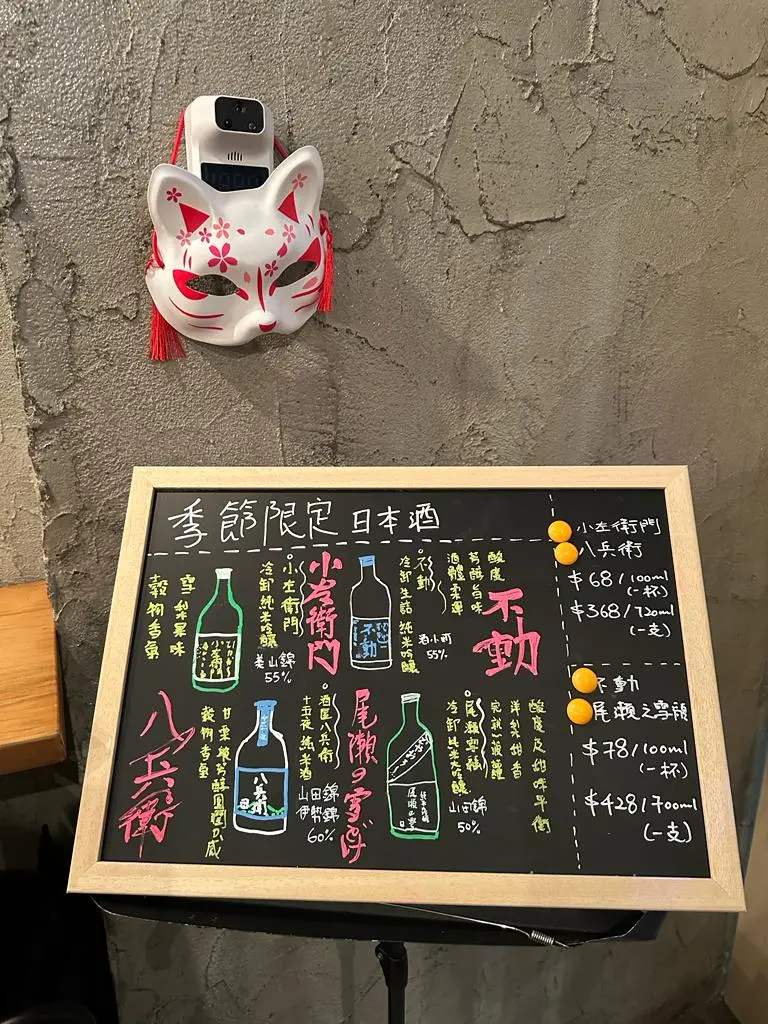 季節限定 日本酒
不動
酸度
芳醇旨味
酒體柔軟
不動
冷卸生詰 純米吟釀
酒小町
55%
不動
小左衛門
小左衛門
冷卸純米吟釀
美山錦
55%
小左衛門
雪梨果味
穀物香氣
尾瀨の雪どけ
酸度及甜味平衡
洋梨甜香
冷卸純米大吟釀
山田錦
50%
八兵衛
酒屋八兵衛
十五夜 純米酒
山田錦
伊勢錦
60%
八兵衛
穀物香氣
小左衛門
八兵衛
$68/100ml
(一杯)
$368/720ml
(一支)
不動
尾瀨之雪融
$78/100ml
(一杯)
$428/700ml
(一支)